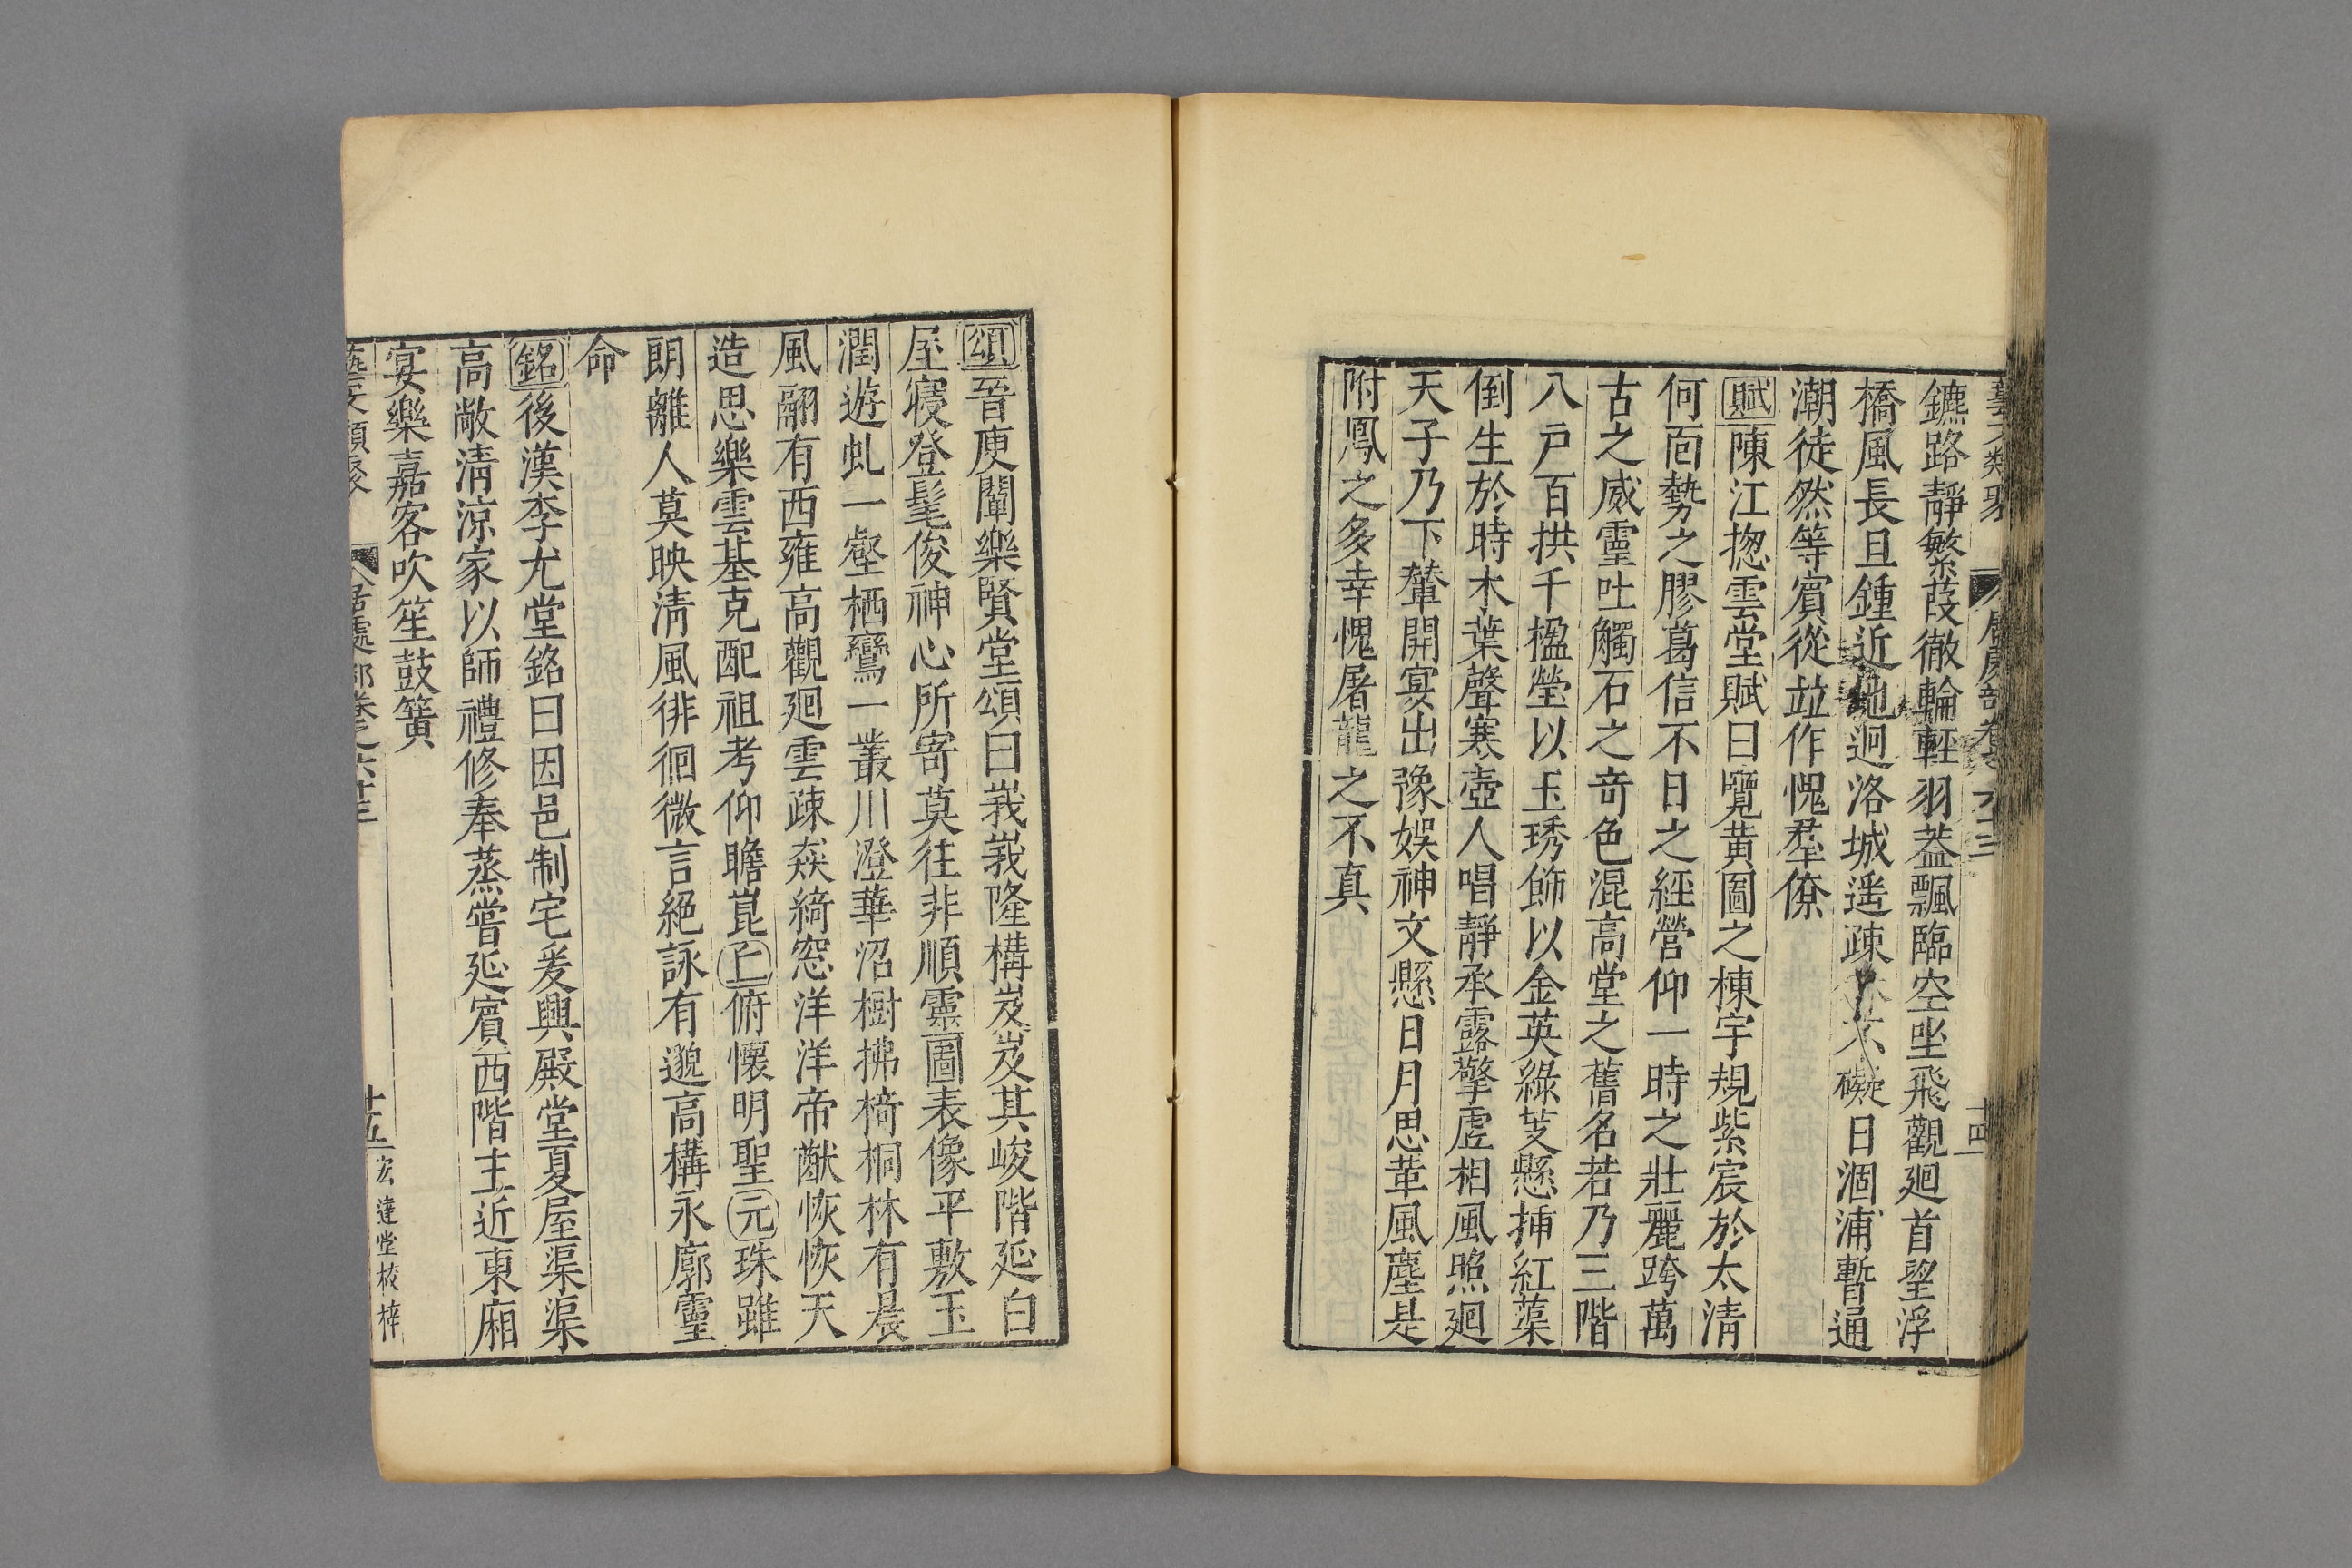 藝文類聚 居處部卷之六十三 十四
鑣路靜繁葭徹輪輕羽葢飄臨空坐飛觀廻首望浮
橋風長且鍾近地迥洛城遥疎林不礙日涸浦暫通
潮徒然等賓從竝作愧羣僚
賦陳江揔雲堂賦曰覽黄圖之棟宇規紫宸於太清
何面勢之膠葛信不日之經營仰一時之壯麗跨萬
古之威靈吐觸石之竒色混高堂之舊名若乃三階
八戸百拱千楹瑩以玉琇飾以金英綠芰懸揷紅蕖
倒生於時木葉聲寒壺人唱靜承露擎虚相風照廻
天子乃下輦開宴出豫娛神文懸日月思革風塵是
附鳳之多幸愧屠龍之不真
頌晉庾闡樂賢堂頌曰峩峩隆構岌岌其峻階延白
屋寢登髦俊神心所寄莫往非順靈圖表像平敷玉
潤遊虬一壑栖鸞一叢川澄華沼樹拂椅桐林有晨
風翮有西雍高觀廻雲疎猋綺窓洋洋帝猷恢恢天
造思樂雲基克配祖考仰瞻崑丘俯懷明聖元珠雖
朗離人莫映清風徘徊微言絕詠有邈高構永廓靈
命
銘後漢李尤堂銘曰因邑制宅爰興殿堂夏屋渠渠
高敞清涼家以師禮修奉蒸嘗延賓西階主近東廂
宴樂嘉客吹笙鼓簧
藝文類聚 居處部卷之六十三 十五 宏達堂校梓